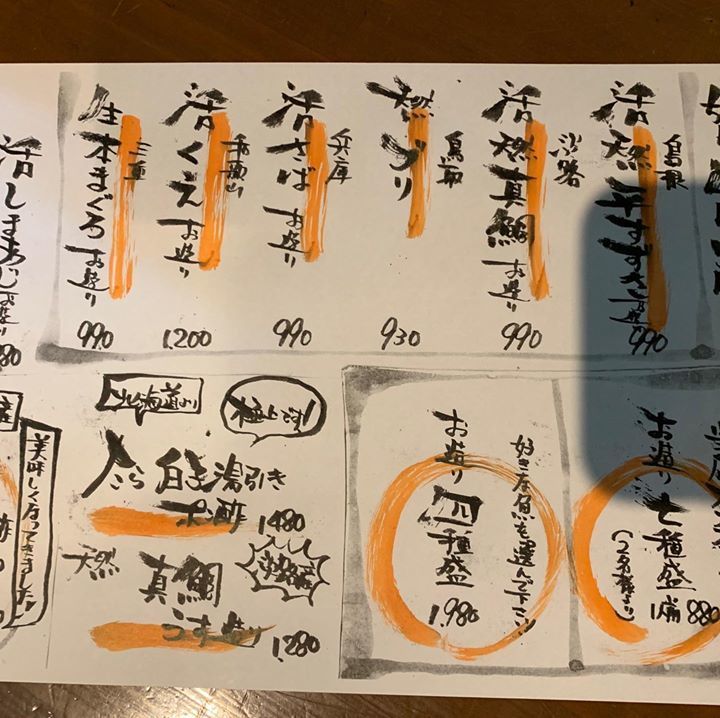 島根
活 天然 すずき お造り
990
淡路
活 天然 真鯛 お造り
990
鳥取
天然 ブリ
930
兵庫
活 さば お造り
990
和歌山
活 くえ お造り
1,200
三重
生本まぐろ お造り
990
活しまあじ お造り
お造り 七種盛
(2名様より)
1人前 880
好きな魚を選んで下さい
お造り 四種盛
1,980
北海道
極上です!
たら 白子 湯引き
ポン酢 1,480
天然 真鯛
うす造り 1,280
美味しくなってきました!